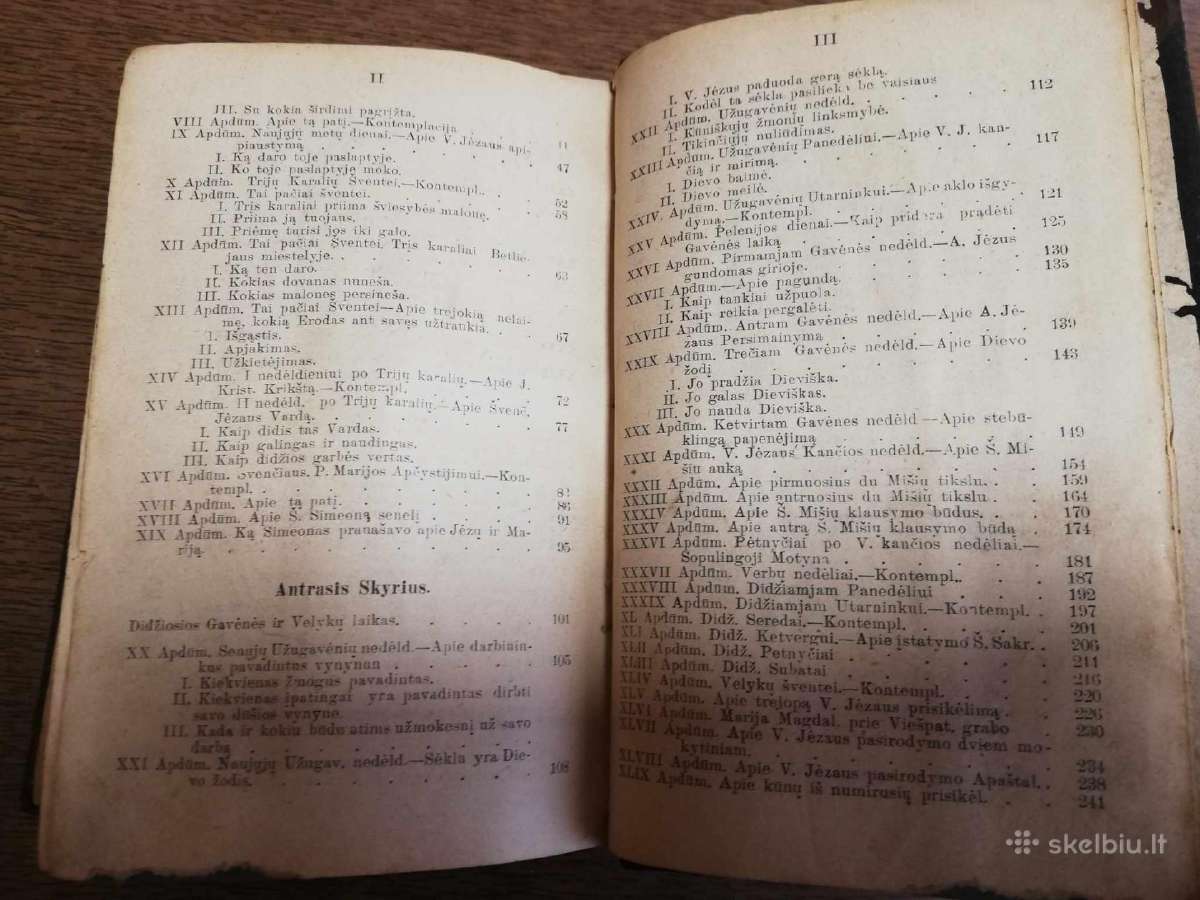 II
III. Su kokia širdimi pagrįžta.
VIII Apdūm. Apie tą patį.—Kontemplacija
IX Apdūm. Naujųjų metų dienai.—Apie V. Jėzaus api-
piaustymą . . . . . . 41
I. Ką daro toje paslaptyje.
II. Ko toje paslaptyje moko. 47
X Apdūm. Trijų Karalių Šventei.—Kontempl. .
XI Apdūm. Tai pačiai šventei. . . . . 52
I. Tris karaliai priima šviesybės malonę. 58
II. Priima ją tuojaus.
III. Priėmę turisi jos iki galo.
XII Apdūm. Tai pačiai Šventei. Tris karaliai Betlie-
jaus miestelyje. . . . . . 63
I. Ką ten daro.
II. Kokias dovanas nuneša.
III. Kokias malones persineša.
XIII Apdūm. Tai pačiai Šventei—Apie trejokią nelai-
mę, kokią Erodas ant savęs užtraukia. . 67
I. Išgąstis.
II. Apjakimas.
III. Užkietėjimas.
XIV Apdūm. I nedėldieniui po Trijų karalių.—Apie J.
Krist. Krikštą.—Kontempl. . . . 72
XV Apdūm. II nedėld. po Trijų karalių.—Apie Švenč.
Jėzaus Vardą. . . . . . 77
I. Kaip didis tas Vardas.
II. Kaip galingas ir naudingas.
III. Kaip didžios garbės vertas.
XVI Apdūm. Švenčiaus. P. Marijos Apčystijimui.—Kon-
templ. . . . . . . 82
XVII Apdūm. Apie tą patį. . . . . 86
XVIII Apdūm. Apie Š. Simeoną senelį . . . 91
XIX Apdūm. Ką Simeonas pranašavo apie Jėzų ir Ma-
riją. . . . . . . 95
Antrasis Skyrius.
Didžiosios Gavėnės ir Velykų laikas. . . . 101
XX Apdūm. Senųjų Užugavėnių nedėld.—Apie darbinin-
kus pavadintus vynynan . . . . 105
I. Kiekvienas žmogus pavadintas.
II. Kiekvienas ipatingai yra pavadintas dirbti
savo dušios vynyne.
III. Kada ir kokiu būdu atims užmokesnį už savo
darbą . . . . . .
XXI Apdūm. Naujųjų Užugav. nedėld.—Sėkla yra Die-
vo žodis. . . . . . 108
III
I. V. Jėzus paduoda gerą sėklą.
II. Kodėl ta sėkla pasilieka be vaisiaus
XXII Apdūm. Užugavėnių nedėld. . . . 112
I. Kūniškųjų žmonių linksmybė.
II. Tikinčiųjų nuliūdimas.
XXIII Apdūm. Užugavėnių Panedėliui.—Apie V. J. kan-
čią ir mirimą. . . . . . 117
I. Dievo baimė.
II. Dievo meilė.
XXIV. Apdūm. Užugavėnių Utarninkui.—Apie aklo išgy-
dymą.—Kontempl. . . . . 121
XXV Apdūm. Pelenijos dienai.—Kaip pridera pradėti
Gavėnės laiką . . . . . 125
XXVI Apdūm. Pirmamjam Gavėnės nedėld.—A. Jėzus
gundomas girioje. . . . . 130
XXVII Apdūm.—Apie pagundą. . . . 135
I. Kaip tankiai užpuola.
II. Kaip reikia pergalėti.
XXVIII Apdūm. Antram Gavėnės nedėld.—Apie A. Jė-
zaus Persimainymą . . . . 139
XXIX Apdūm. Trečiam Gavėnės nedėld.—Apie Dievo
žodį . . . . . . 143
I. Jo pradžia Dieviška.
II. Jo galas Dieviškas.
III. Jo nauda Dieviška.
XXX Apdūm. Ketvirtam Gavėnes nedėld—Apie stebū-
klingą papenėjimą . . . . 149
XXXI Apdūm. V. Jėzaus Kančios nedėld.—Apie Š. Mi-
šių auką . . . . . . 154
XXXII Apdūm. Apie pirmuosius du Mišių tikslu. . . 159
XXXIII Apdūm. Apie antruosius du Mišių tikslu . . 164
XXXIV Apdūm. Apie Š. Mišių klausymo būdus. . . 170
XXXV Apdūm. Apie antrą Š. Mišių klausymo būdą . 174
XXXVI Apdūm. Pėtnyčiai po V. kančios nedėliai.—
Sopulingoji Motyna . . . . 181
XXXVII Apdūm. Verbų nedėliai.—Kontempl. . . 187
XXXVIII Apdūm. Didžiamjam Panedėliui . . . 192
XXXIX Apdūm. Didžiamjam Utarninkui.—Kontempl. . 197
XL Apdūm. Didž. Seredai.—Kontempl. . . . 201
XLI Apdūm. Didž. Ketvergui.—Apie įstatymo Š. Sakr. . 206
XLII Apdūm. Didž. Petnyčiai . . . . 211
XLIII Apdūm. Didž. Subatai . . . . 216
XLIV Apdūm. Velykų šventei.—Kontempl. . . . 220
XLV Apdūm. Apie trėjopą V. Jėzaus prisikėlimą. . . 226
XLVI Apdūm. Marija Magdal. prie Viešpat. grabo . 230
XLVII Apdūm. Apie V. Jėzaus pasirodymo dviem mo-
kytiniam. . . . . . 234
XLVIII Apdūm. Apie V. Jėzaus pasirodymo Apaštal. . 238
XLIX Apdūm. Apie kūnų iš numirusių prisikėl. . . 241
skelbiu.lt